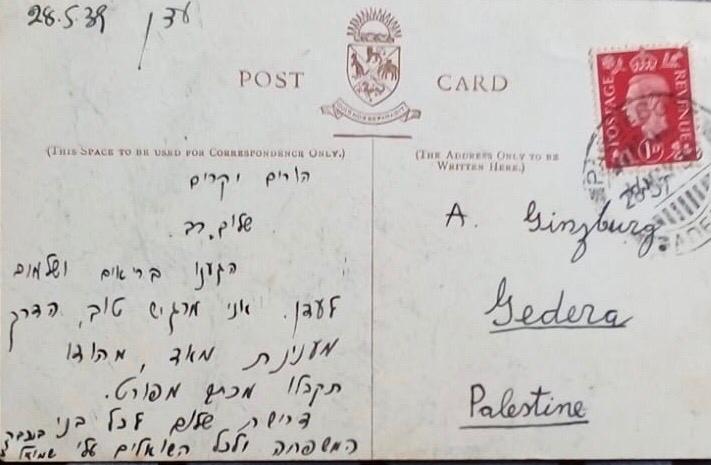 28.5.39 עדן
POST CARD
(THIS SPACE TO BE USED FOR CORRESPONDENCE ONLY.)
(THE ADDRESS ONLY TO BE
WRITTEN HERE.)
POSTAGE REVENUE
1D
הורים יקרים
שלום רב.
הגענו בריאים ושלמים
לעדן. אני מרגיש טוב, הדרך
מענינת מאד, מהודו
תקבלו מכתב מפורט.
דרישת שלום לכל בני
המשפחה ולכל השואלים עלי
A. Ginzburg
Gedera
Palestine